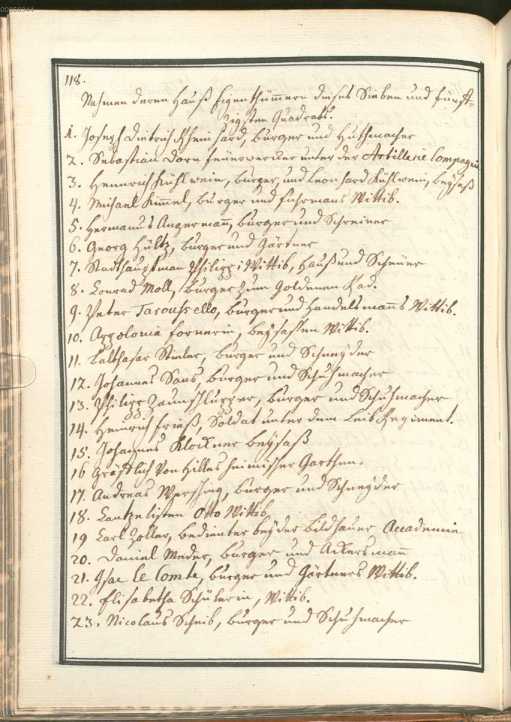 118.
Nahmen deren Hauß Eigenthümmern dieses Sieben und fünff-
zigsten Quadrats.
1. Joseph Dietrich Rheinhard, burger und Huthmacher
2. Sebastian Dorn feuerwercker unter der Artillerie Compagnie
3. Hennrich Kühlwein, burger, und Leonhard Kühlwein, beysaß
4. Michael Kimmel, burger und fuhrmans Wittib.
5. Hermanus Angermann, burger und Schreiner
6. Georg Hültz, burger und Gärtner
7. Stadthauptman Philippi Wittib, Hauß und Scheuer
8. Conrad Moll, burger zum Goldenen Rad.
9. Peter Tarousello, burger und Handelsmanns Wittib.
10. Appolonia Fornerin, beysassen Wittib.
11. Balthasar Stuler, burger und Schneyder
12. Johannes Sans, burger und Schuhmacher
13. Philipp Zaunschlupper, burger und Schuhmacher
14. Heinrich Frieß, Soldat unter dem Leib Regiment.
15. Johannes Klockner beysaß
16 Gräfflich Von Hillesheimischer Garthen.
17. Andreas Wersching, burger und Schneyder
18. Cantzelisten Otto Wittib
19 Carl Zoller, bedienter bey der Bildhauer Accademie
20. Daniel Meder, burger und Ackersmann
21. Isac le Comte, burger und Gärtners Wittib.
22. Elisabetha Schülerin, Wittib.
23. Nicolaus Scheib, burger und Schuhmacher